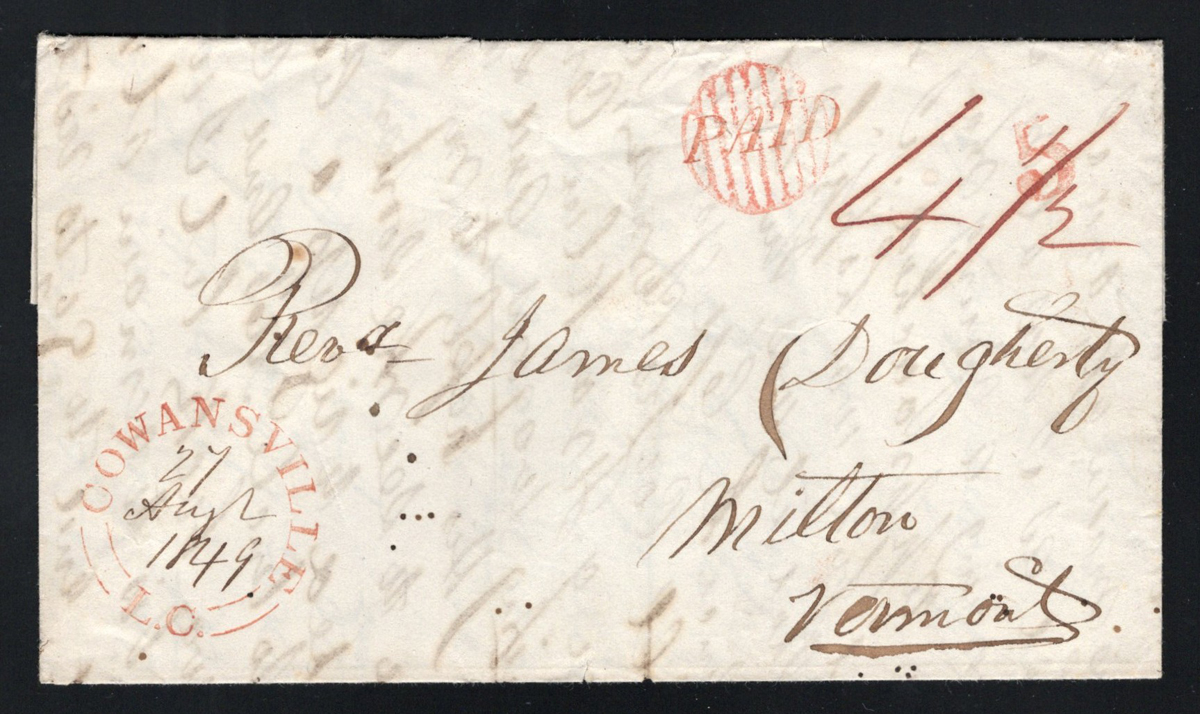 PAID
4 1/2
5
Revd James Dougherty
Milton
Vermont
COWANSVILLE
27
Augt
1849
L.C.